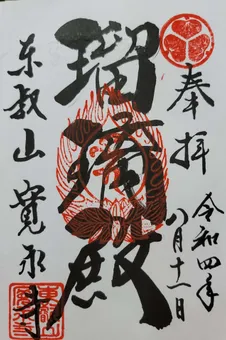 奉拝
令和四年
八月十一日
瑠璃殿
東叡山 寛永寺